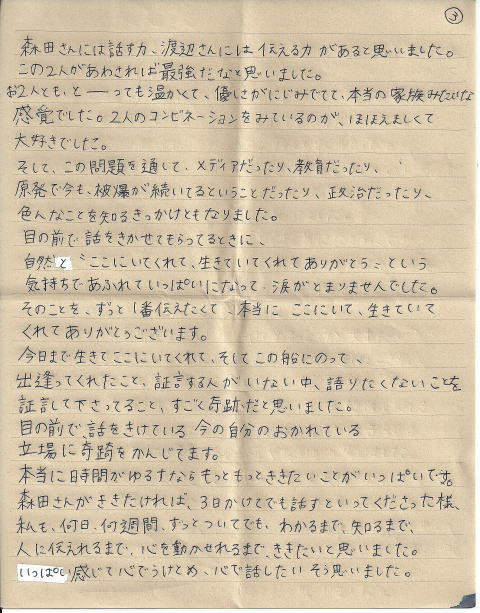 ③
森田さんには話す力、渡辺さんには伝える力があると思いました。
この2人があわされば最強だなと思いました。
お2人とも、と――っても温かくて、優しさがにじみでてて、本当の家族みたいな
感覚でした。2人のコンビネーションをみているのが、ほほえましくて
大好きでした。
そして、この問題を通して、メディアだったり、教育だったり、
原発で今も、被爆が続いてるということだったり、政治だったり、
色んなことを知るきっかけともなりました。
目の前で話をきかせてもらってるときに、
自然と "ここにいてくれて、生きていてくれてありがとう" という
気持ちであふれていっぱいになって、涙がとまりませんでした。
そのことを、ずっと1番伝えたくて、本当に ここにいて、生きていて
くれてありがとうございます。
今日まで生きてここにいてくれて、そしてこの船にのって、
出逢ってくれたこと、証言する人がいない中、語りたくないことを
証言して下さってること、すごく奇跡だと思いました。
目の前で、話をきけている 今の自分のおかれている
立場に奇跡をかんじてます。
本当に時間がゆるすならもっともっとききたいことがいっぱいで
森田さんがききたければ、3日かけてでも話すといってくださった様、
私も、何日、何週間、ずっとついてでも、わかるまで、知るまで、
人に伝えれるまで、心を動かせれるまで、ききたいと思いました。
いっぱい感じて心でうけとめ、心で話したい そう思いました。